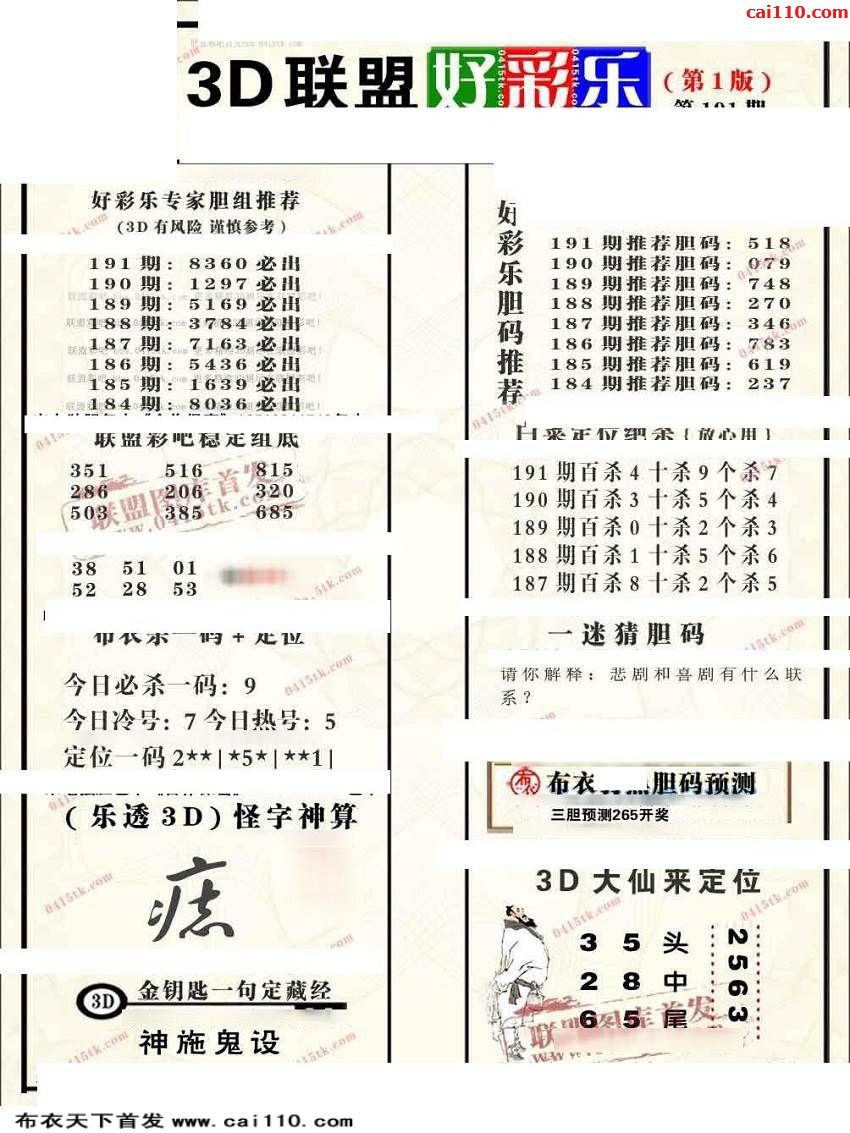 cai110.com
3D联盟好彩乐(第1版)
第191期
好彩乐专家胆组推荐
(3D有风险 谨慎参考)
191期: 8360必出
190期: 1297必出
189期: 5169必出
188期: 3784必出
187期: 7163必出
186期: 5436必出
185期: 1639必出
184期: 8036必出
联盟彩吧稳定组底
351 516 815
286 206 320
503 385 685
38 51 01
52 28 53
布衣杀一码+定位
今日必杀一码: 9
今日冷号: 7 今日热号: 5
定位一码 2**|*5*|**1|
(乐透3D)怪字神算
痣
3D 金钥匙一句定藏经
神施鬼设
好彩乐胆码推荐
191期推荐胆码: 518
190期推荐胆码: 079
189期推荐胆码: 748
188期推荐胆码: 270
187期推荐胆码: 346
186期推荐胆码: 783
185期推荐胆码: 619
184期推荐胆码: 237
191期百杀4十杀9个杀7
190期百杀3十杀5个杀4
189期百杀0十杀2个杀3
188期百杀1十杀5个杀6
187期百杀8十杀2个杀5
一迷猜胆码
请你解释: 悲剧和喜剧有什么联
系?
布衣 胆码预测
三胆预测265开奖
3D大仙来定位
3 5 头
2 8 中
6 5 尾
2563
联盟图库首发
www.0415tk.com
0415tk.com
布衣天下首发 www.cai110.com